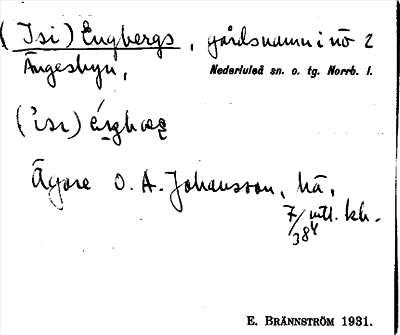 (Isi) Engbergs, gårdsnamn i nö 2
Ängesbyn,
Nederluleå sn. o. tg. Norrb. l.
Ägare O. A. Johansson, hä,
7/384 mtl. kh.
E. BRÄNNSTRÖM 1931.